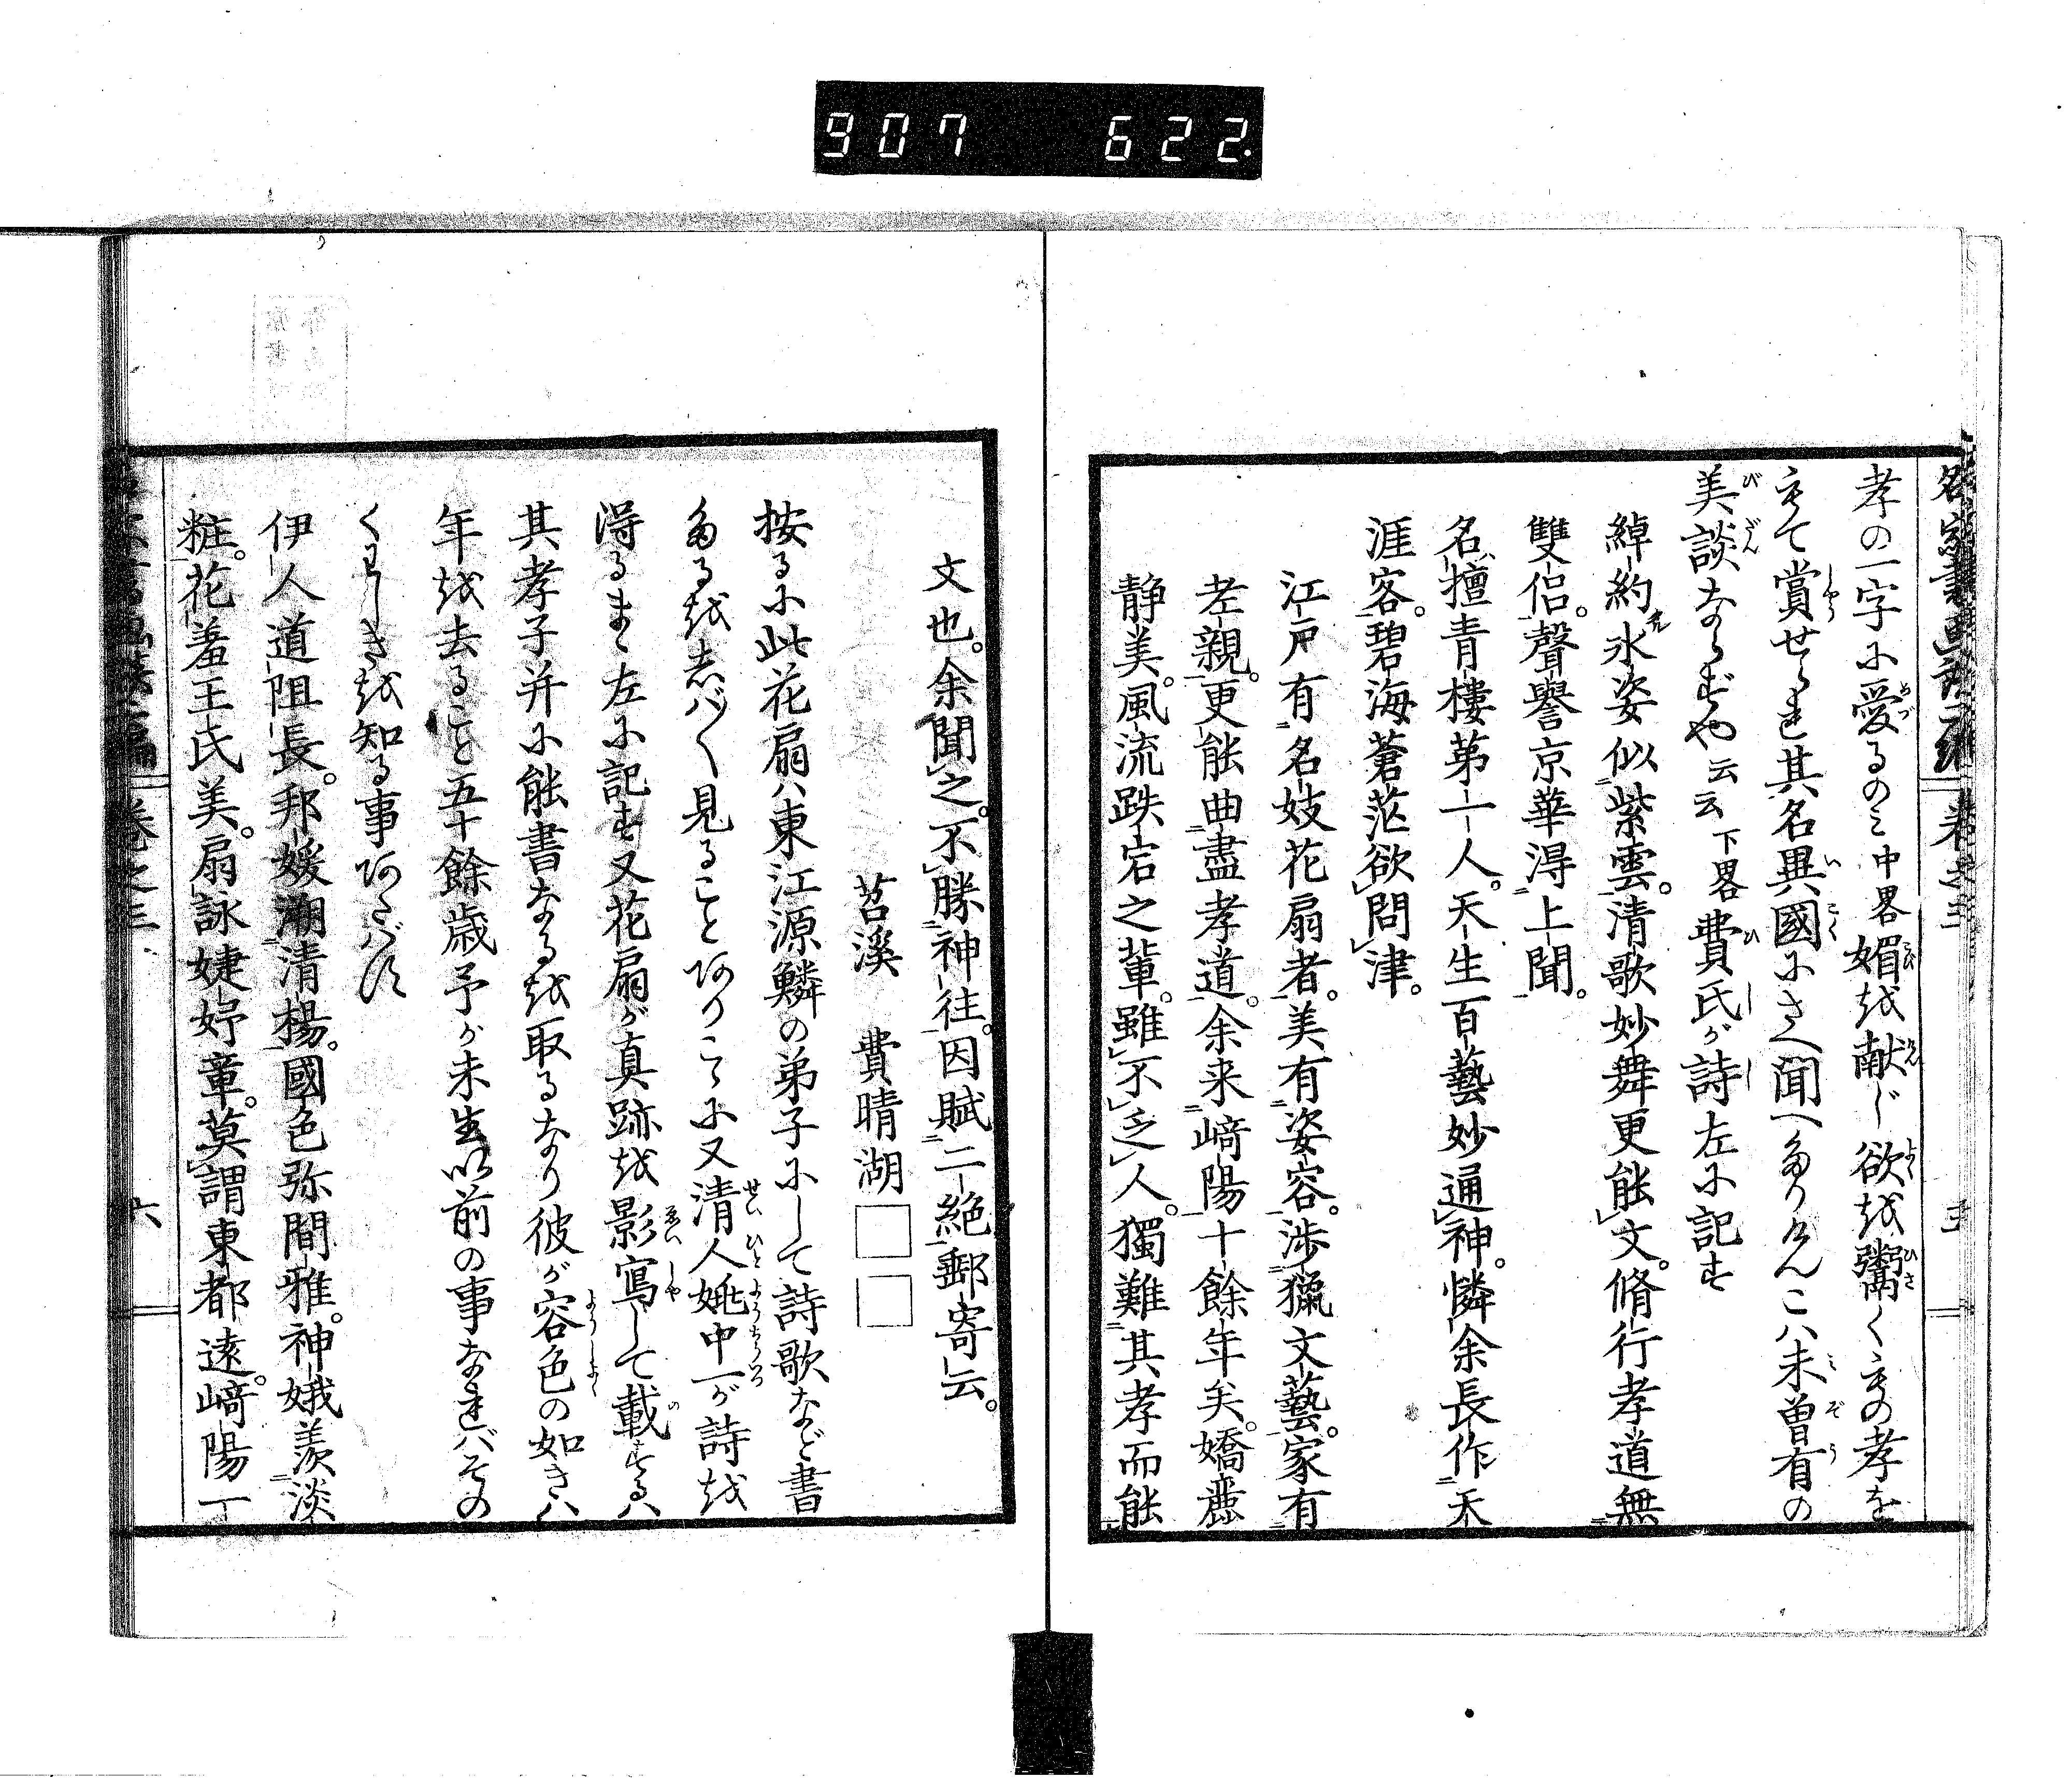 907 622
孝の一字に愛るのミ中畧媚を献じ欲を鬻くもの孝を
もて賞せられ其名異國にさへ聞へたりけんこハ未曽有の
美談ならずや云云下畧費氏が詩左に記す
綽約氷姿似紫雲。清歌妙舞更能文。脩行孝道無
雙侶。聲譽京華得上聞。
名擅青樓第一人。天生百藝妙通神。憐余長作天
涯客。碧海蒼茫欲問津。
江戸有名妓花扇者。美有姿容。渉獵文藝。家有
老親。更能曲盡孝道。余来﨑陽十餘年矣。嬌麗
静美。風流跌宕之輩。雖不乏人。獨難其孝而能
文也。余聞之。不勝神往。因賦二絶郵寄云。
苕溪 費晴湖
按るに此花扇ハ東江源鱗の弟子にして詩歌など書
たるを志バ〳〵見ることありこゝに又清人姚中一が詩を
得るまゝ左に記す又花扇が真跡を影寫して載するハ
其孝子并に能書なるを取るなり彼が容色の如きハ
年を去ること五十餘歳予が未生以前の事なれバその
くわしきを知る事あたハず
伊人道阻長。邦媛溯清楊。國色弥閒雅。神娥羨淡
粧。花羞王氏美。扇詠婕妤章。莫謂東都遠。﨑陽一
卷之三
六